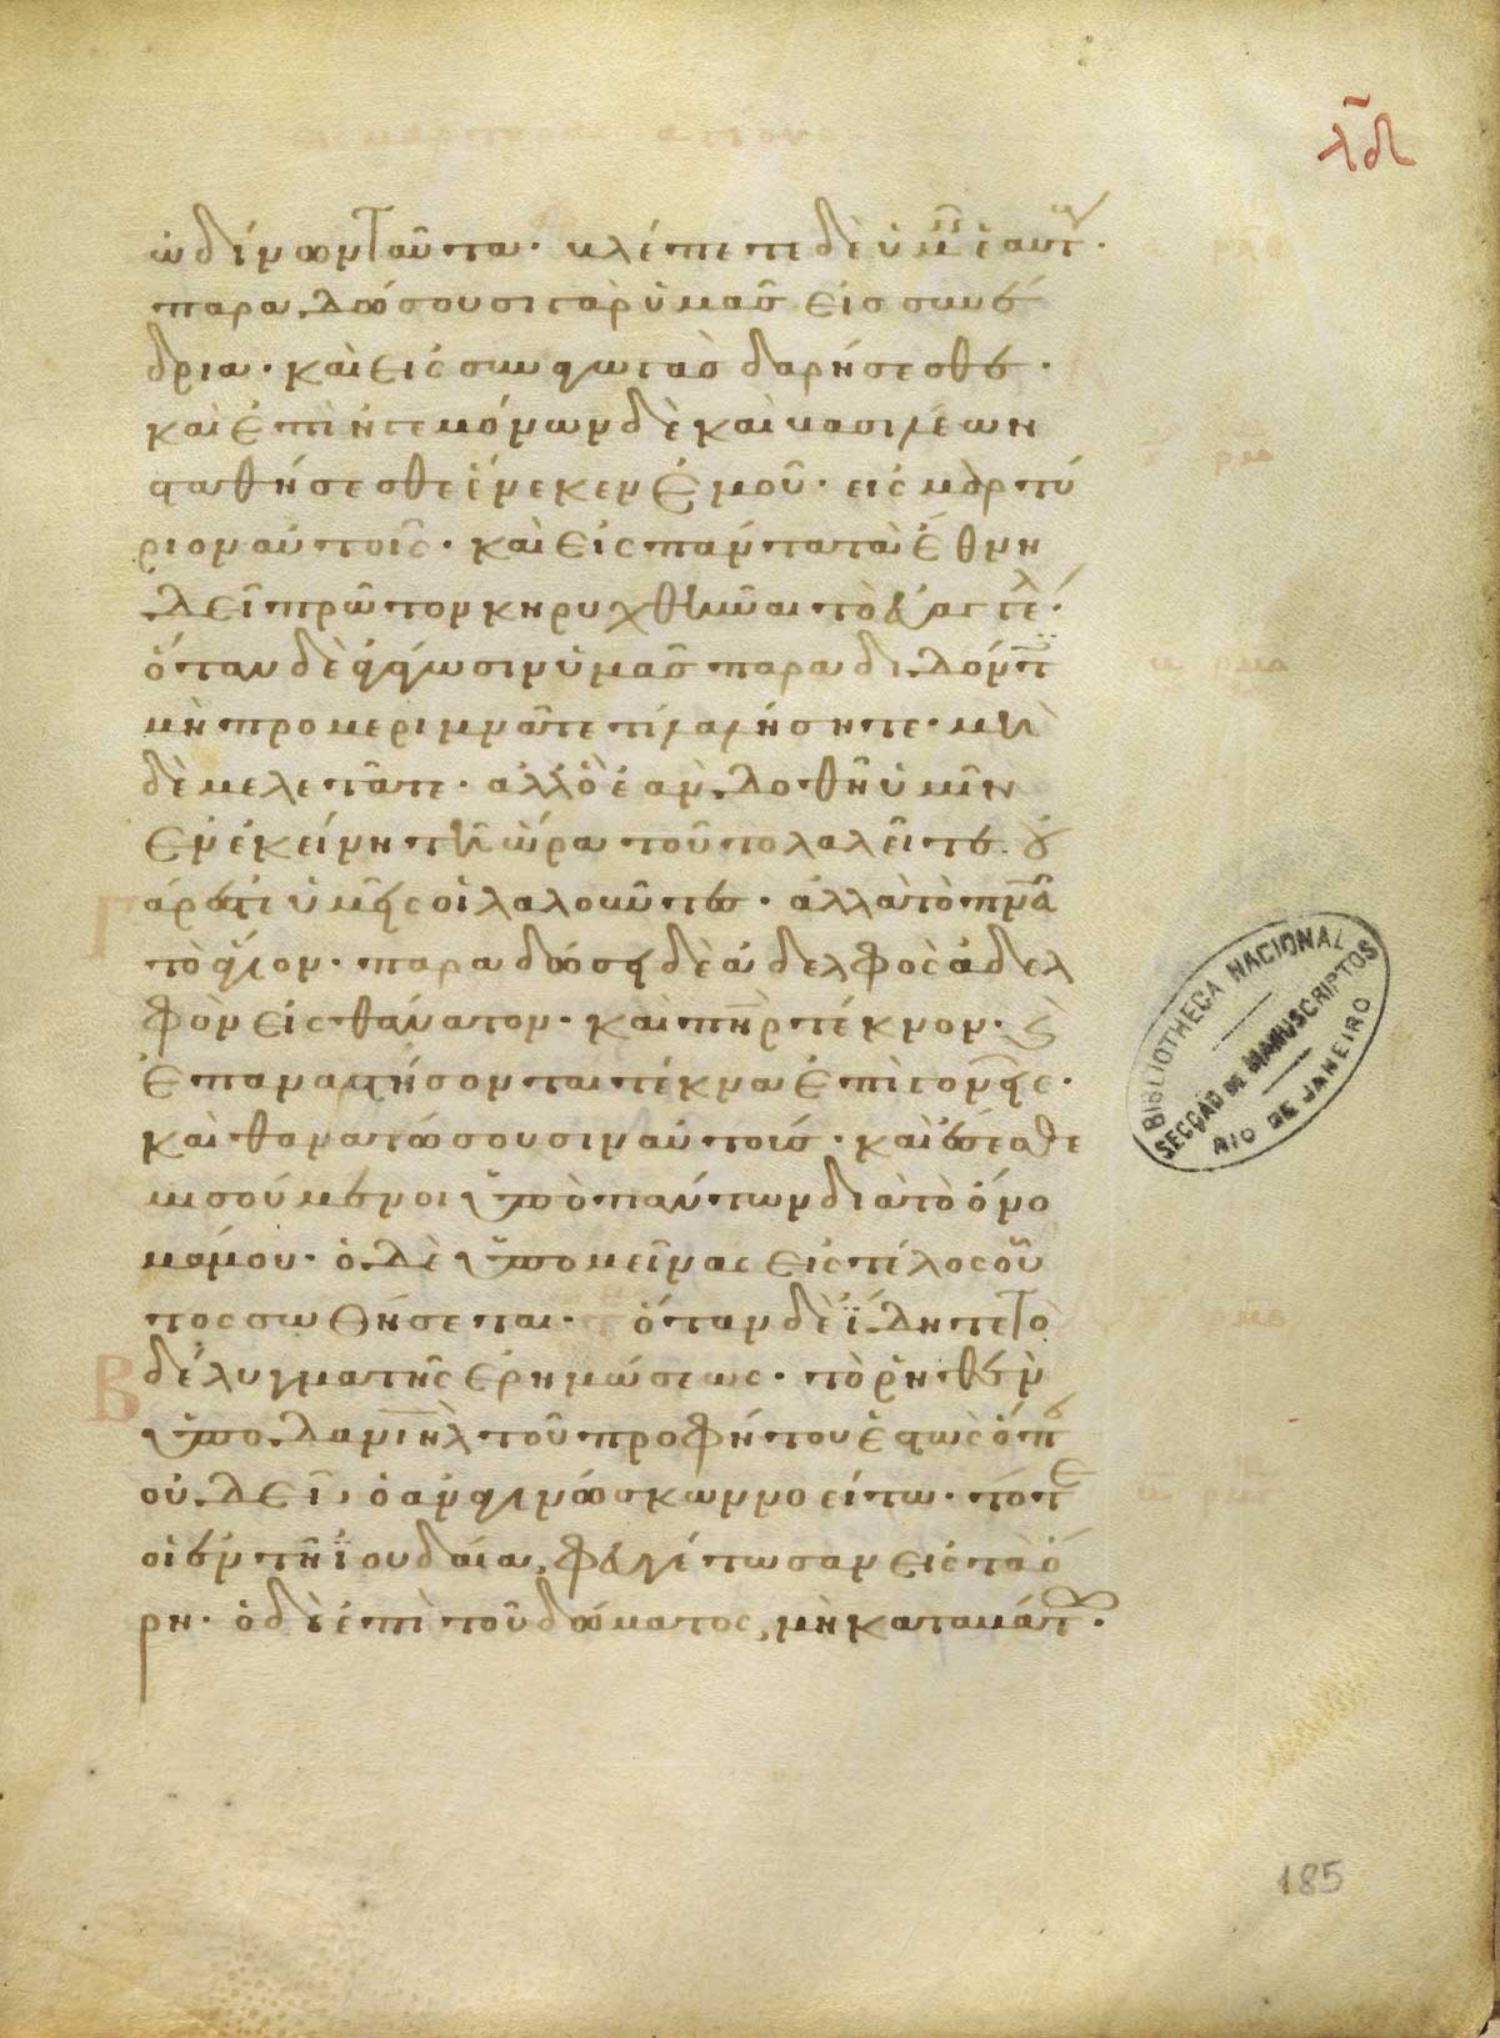 λδ
ὠδίνων ταῦτα· βλέπετε δὲ ὑμεῖς ἑαυτ·
παραδώσουσι γὰρ ὑμᾶς εἰς συνέ
δρια· καὶ εἰς συναγωγὰς δαρήσεσθε·
καὶ ἐπὶ ἡγεμόνων δὲ καὶ βασιλέων
σταθήσεσθε ἕνεκεν ἐμοῦ· εἰς μαρτύ
ριον αὐτοῖς· καὶ εἰς πάντα τὰ ἔθνη
δεῖ πρῶτον κηρυχθῆναι τὸ εὐαγγέλ·
ὅταν δὲ ἄγωσιν ὑμᾶς παραδιδόντ
μὴ προμεριμνᾶτε τί λαλήσητε· μη
δὲ μελετᾶτε· ἀλλ' ὃ ἐὰν δοθῆ ὑμῖν
ἐν ἐκείνη τῆ ὥρα τοῦτο λαλεῖτε. οὐ
γάρ ἐστε ὑμεῖς οἱ λαλοῦντες· ἀλλὰ τὸ πνα
τὸ ἅγιον· παραδώσει δὲ ἀδελφὸς ἀδελ
φὸν εἰς θάνατον· καὶ πηρ τέκνον· κὶ
ἐπαναστήσονται τέκνα ἐπὶ γονεῖς·
καὶ θανατώσουσιν αὐτούς· καὶ ἔσεσθε
μισούμενοι ὑπὸ πάντων διὰ τὸ ὄνο
μά μου· ὁ δὲ ὑπομείνας εἰς τέλος οὗ
τος σωθήσεται· ὅταν δὲ ἴδητε τὸ
βδέλυγμα τῆς ἐρημώσεως· τὸ ῥηθὲν
ὑπὸ δανιὴλ τοῦ προφήτου ἑστὼς ὅπου
οὐ δεῖ, ὁ ἀναγινώσκων νοείτω· τότε
οἱ ἐν τῆ ἰουδαία, φευγέτωσαν εἰς τὰ ὄ
ρη· ὁ δὲ ἐπὶ τοῦ δώματος, μὴ καταβάτω·
BIBLIOTHECA NACIONAL
SECÇÃO DE MANUSCRIPTOS
RIO DE JANEIRO
185